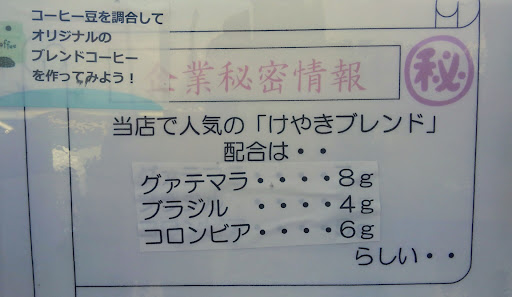 コーヒー豆を調合して
オリジナルの
ブレンドコーヒー
を作ってみよう！
企業秘密情報
㊙
当店で人気の「けやきブレンド」
配合は・・
グァテマラ・・・・8g
ブラジル　・・・・4g
コロンビア・・・・6g
らしい・・